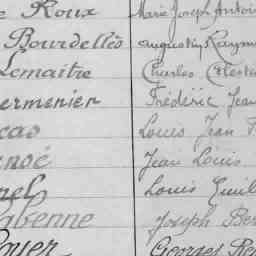 Roux Marie Joseph Antoi
Bourdellès Augustin Raym
Lemaitre Charles Célestin
ermenier Frédéric Jean
cas Louis Jean
noé Jean Louis
nel Louis Guil
abenne Joseph Be
oyer Georges Re